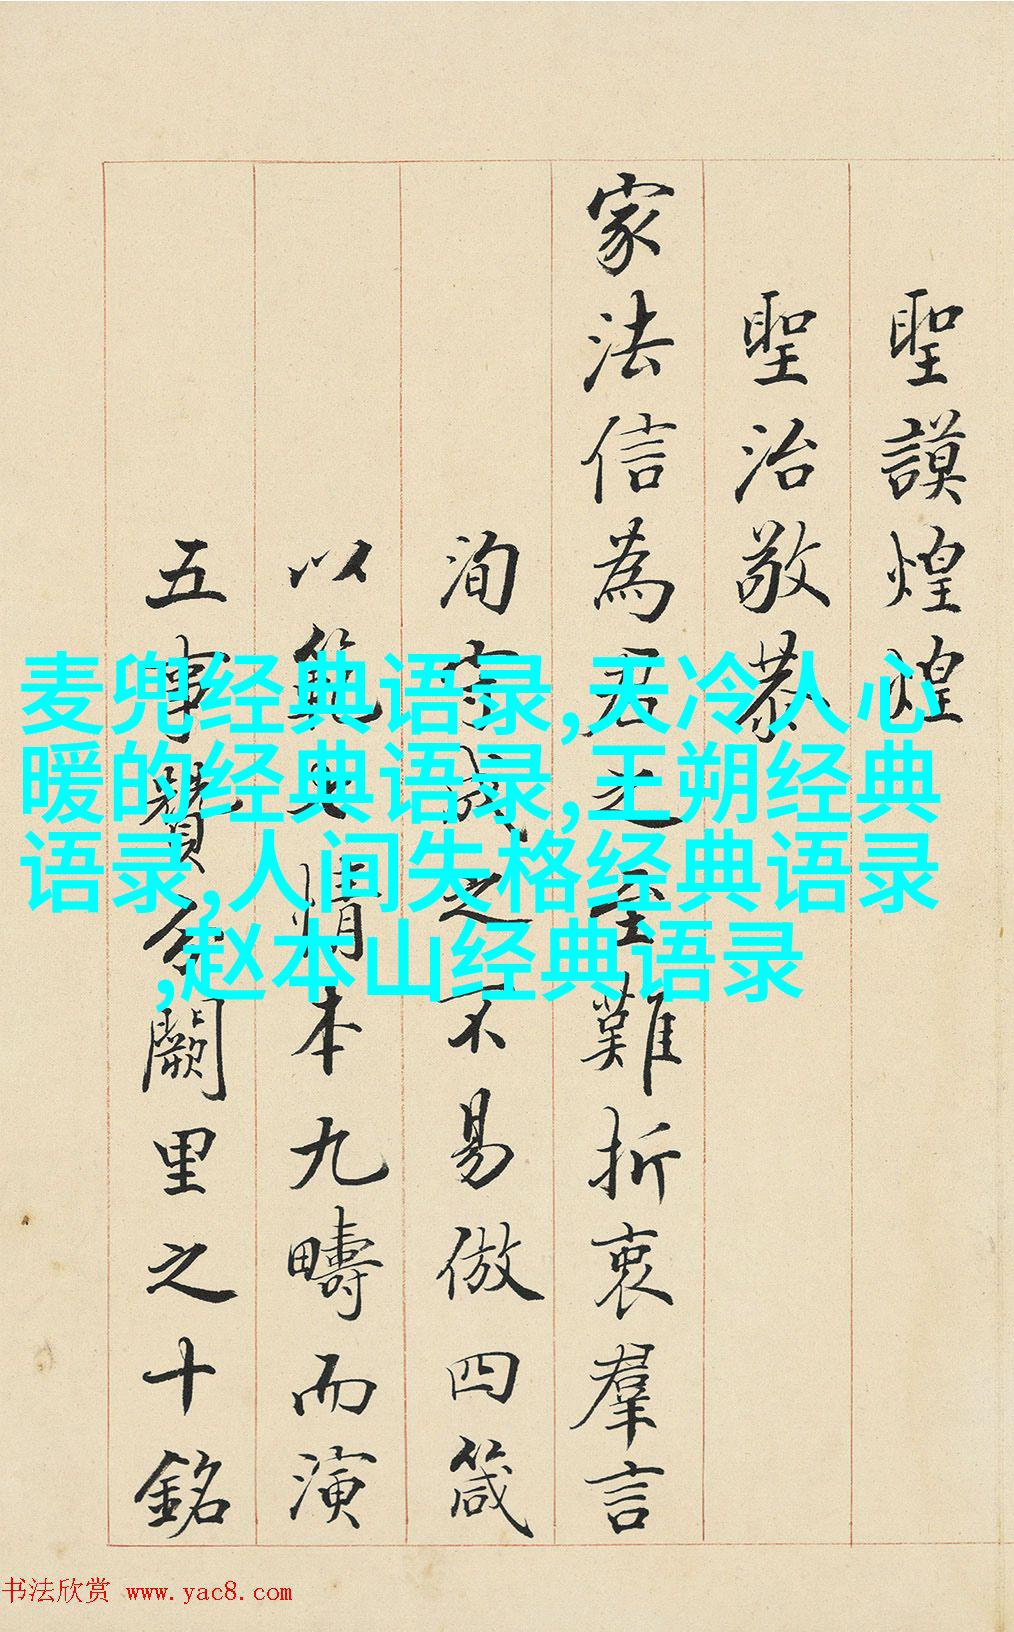 聖謨煌煌
聖治敬恭
家法信為君之至難折衷羣言
洵前哲之不易倣四箴
以範情本九疇而演
五事贊合闕里之十銘
麦兜经典语录,天冷人心
暖的经典语录,王朔经典
语录,人间失格经典语录
,赵本山经典语录
书法欣赏 www.yac8.com